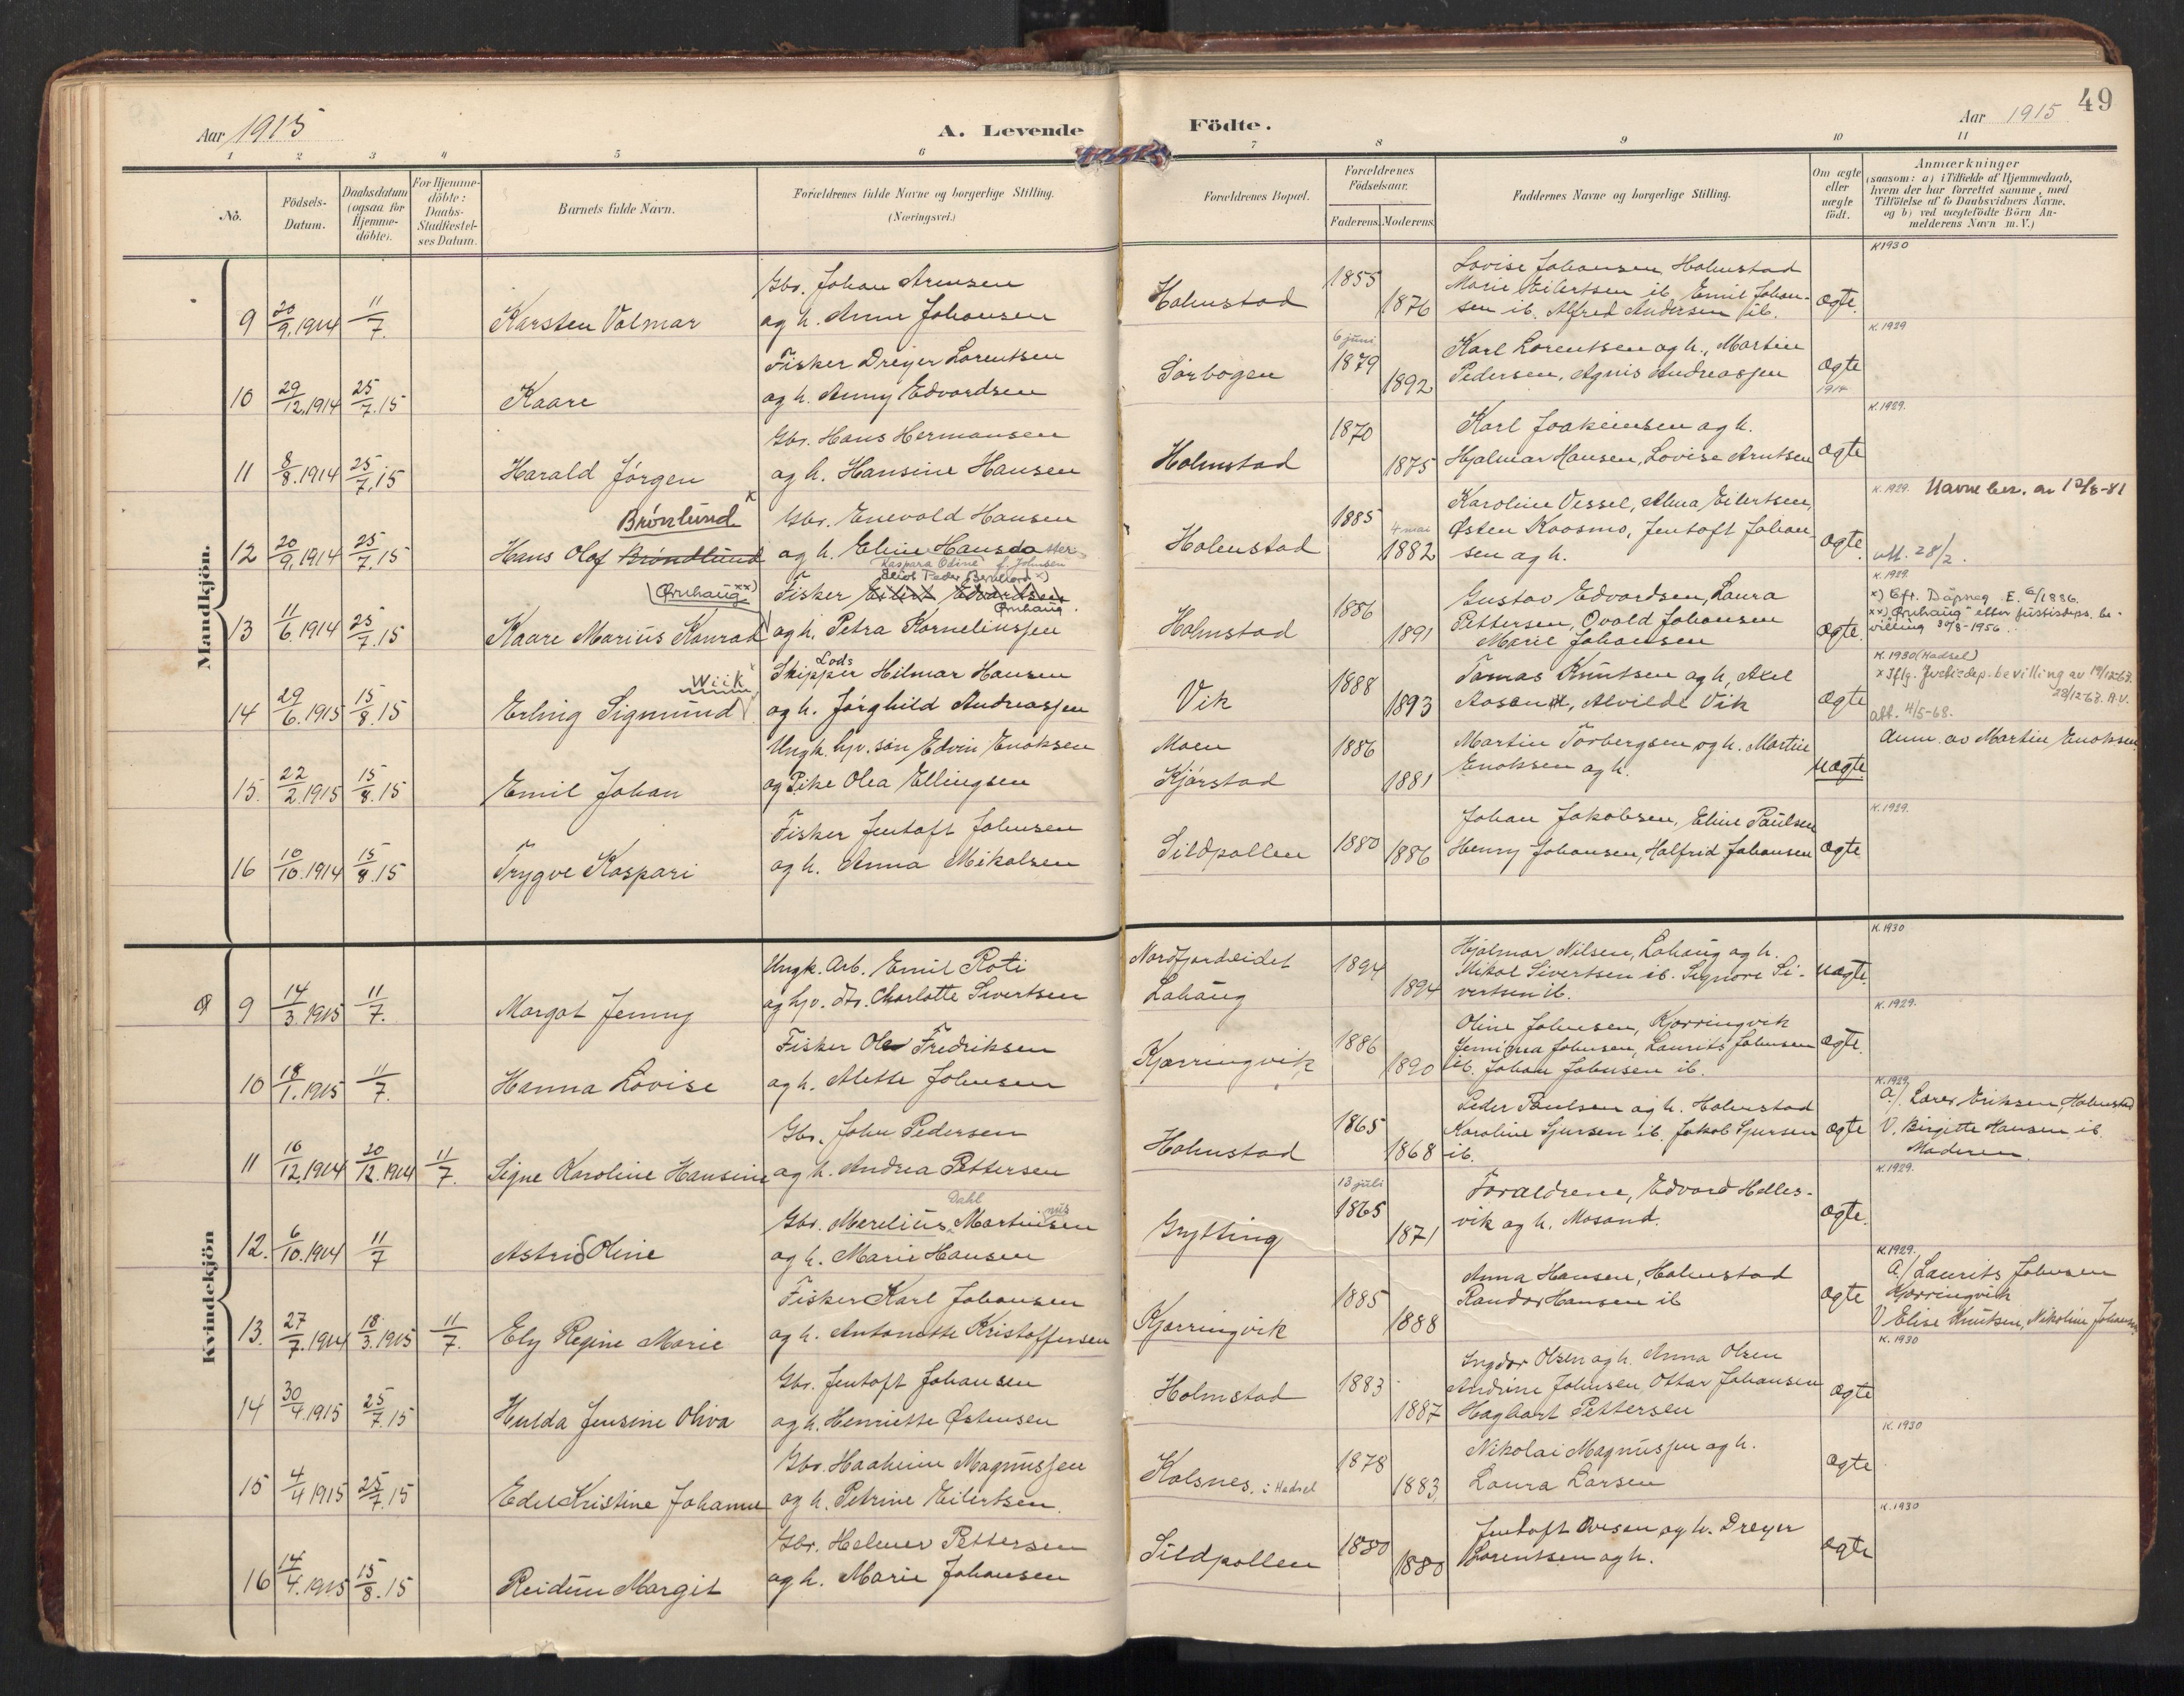 49
Aar 1915
A. Levende Födte.
Aar 1915
1 2 3 4 5 6 7 8 9 10 11
No.
Födsels-
Datum.
Daabsdatum
(ogsaa for
Hjemme-
döbte).
For Hjemme-
döbte:
Daabs-
Stadfestel-
ses Datum.
Barnets fulde Navn.
Forældrenes fulde Navne og borgerlige Stilling.
(Næringsvei.)
Forældrenes Bopæl.
Forældrenes
Födselsaar.
Faderens Moderens
Faddernes Navne og borgerlige Stilling.
Om ægte
eller
uægte
födt.
Anmærkninger
(saasom: a) i Tilfælde af Hjemmedaab,
hvem der har forrettet samme, med
Tilföielse af to Daabsvidners Navne.
og b) ved uægtefödte Börn An-
melderens Navn m. V.)
Mandkjön.
K1930
Gbr. Johan Arensen
1855
Lovise Johansen Holmstad
Marie Eilertsen ib. Emil Johan-
9 20/9.1914 11/7. Karsten Valmar og h. Anna Johansen Holmstad 1876 sen ib. Alfred Andersen ib. ægte.
K.1929
6 juni
Fisker Dreyer Lorentsen
1879
Karl Lorentsen og h., Martin
10 29/12.1914 25/7.15 Kaare og h. Anny Edvardsen Sørbogen 1892 Pedersen, Agnis Andreassen ægte
1914
K.1929.
Gbr. Hans Hermansen
1870
Karl Joakimsen og h.
11 8/8.1914 25/7.15 Harald Jørgen og h. Hansine Hansen Holmstad 1875 Hjalmar Hansen, Lovise Arntsen ægte
K.1929. Navne bev. av 12/8-81
Brønlund x
Gbr. Enevold Hansen
1885
Karoline Vessel, Alma Eilertsen,
4 mai
Østen Koosmo, Jentoft Johan-
12 20/9.1914 25/7.15 Hans Olaf Brøndlund og h. Eline Hansdatter Holmstad 1882 sen og h. ægte.
att. 28/2.
Kaspara Odine f. Johnsen
K.1929.
Eliot Peder Bernhard x)
Ørnhaug xx)
Fisker Eilert Edvardsen
Ørnhaug.
1886
Gustav Edvardsen, Laura
Pettersen, Ovald Johansen
13 11/6.1914 25/7.15 Kaare Marius Konrad og h. Petra Korneliussen Holmstad 1891 Marie Johansen ægte.
x) Eft. Dåpreg. E. 6/1886.
xx) "Ørnhaug" etter justisdeps. be-
villing 30/8-1956.
K.1930 (Hadsel)
Wiik x
Lods
Skipper Hilmar Hansen
1888
Tomas Knutsen og h, Axel
14 29/6.1915 15/8.15 Erling Sigmund og h. Jørghild Andreassen Vik 1893 Aasen, Alvilde Vik ægte
x Iflg. Justisdep. bevilling av 19/12 63.
28/12 63. A.V.
att. 4/5-68.
Ungk. hjv. søn Edvin Enoksen
Moen
1886
Martin Torbergsen og h. Martin
Anm. av Martin Enoksen
15. 22/2.1915 15/8.15 Emil Johan og Pike Olea Ellingsen Kjørstad 1881 Enoksen og h. uægte
K.1929.
Fisker Jentoft Johnsen
1880
Johan Jakobsen, Eline Paulsen
16 10/10.1914 15/8.15 Trygve Kaspari og h. Anna Mikalsen Sildpollen 1886 Henry Johansen, Halfrid Johansen ægte
Kvindekjön
K.1930
Ungk. Arb. Emil Roti
Nordfjordeidet
1894
Hjalmar Nilsen, Lahaug og h.
Mikal Sivertsen ib. Signore Si-
9 14/3.1915 11/7. Margot Jenny og hjv. dtr. Charlotte Sivertsen Lahaug 1894 vertsen ib. uægte.
K.1929.
Fisker Ole Fredriksen
1886
Oline Johnsen, Kjørringvik
Jemima Johnsen, Laurits Johnsen
10 18/1.1915 11/7. Hanna Lovise og h. Alette Johnsen Kjørringvik 1890 ib. Johan Johnsen ib. ægte.
K.1929
Gbr. John Pedersen
1865
Peder Paulsen og h. Holmstad
Karoline Sjursen ib. Jakob Sjursen
11 16/12.1914 20/12.1914 11/7. Signe Karoline Hansine og h. Andrea Pettersen Holmstad 1868 ib. ægte
A./. Lærer Eriksen, Holmstad
V. Birgitte Hansen ib.
Moderen.
K.1929.
13 juli
Dahl
Gbr. Merelius Martinsen
nus
1865
Forældrene, Edvard Helles-
12. 6/10.1914 11/7 Astrid Oline og h. Marie Hansen Grytting 1871 vik og h. Mosand. ægte.
K.1929.
Fisker Karl Johansen
1885
Anna Hansen, Holmstad
13. 27/7.1914 18/3.1915 11/7. Ely Regine Marie og h. Antonette Kristoffersen Kjørringvik 1888 Randor Hansen ib ægte
A./ Laurits Johnsen
Kjørringvik
V Elise Knutsen, Nikoline Johansen
K.1930
Gbr. Jentoft Johansen
1883
Ingdor Olsen og h. Anna Olsen
Andrine Johnsen, Ottar Johansen
14 30/4.1915 25/7.15 Hulda Jensine Oliva og h. Henriette Østensen Holmstad 1887 Hagbart Pettersen ægte
K.1930
Gbr. Haaheim Magnussen
1878
Nikolai Magnussen og h.
15 4/4 1915 25/7.15 Edel Kristine Johanne og h. Petrine Eilertsen. Kolsnes. i Hadsel 1883 Laura Larsen ægte
K.1930
Gbr. Helmer Pettersen
1880
Jentoft Ovesen og h. Dreyer
16 14/4.1915 15/8.15 Reidun Margit og h. Marie Johansen Sildpollen 1880 Lorentsen og h. ægte